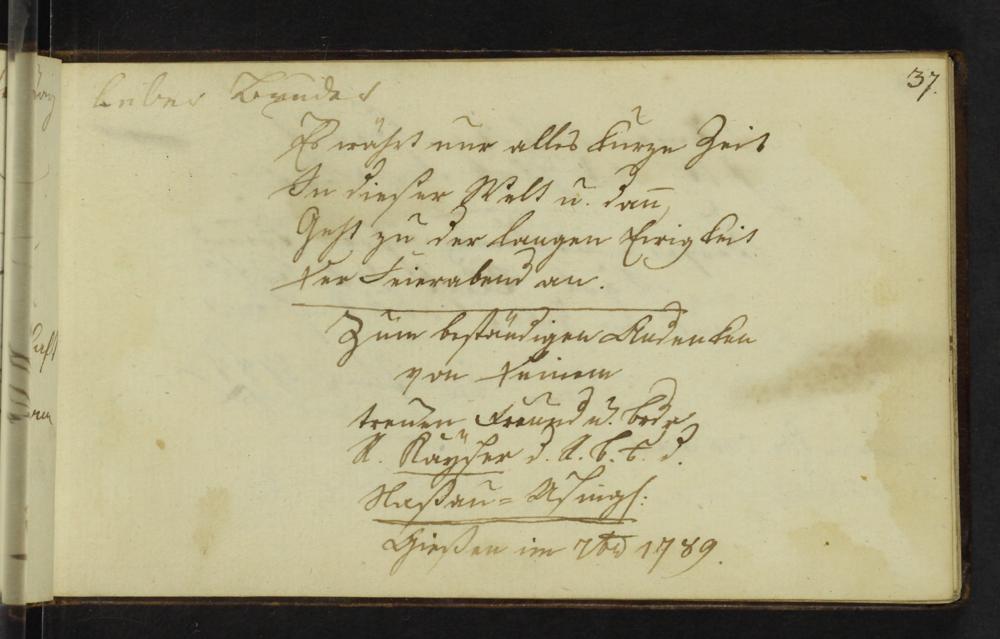 37.
Lieber Bruder
Es währt nur alles kurze Zeit
In dieser Welt u. dann,
Geht zu der langen Ewigkeit
Der Feierabend an.
Zum beständigen Andenken
von Deinem
treuen Freund u. Brdr
A. Kayser d. A. b. C. d.
Naßau-Usingl.
Gießen im 7br 1789.